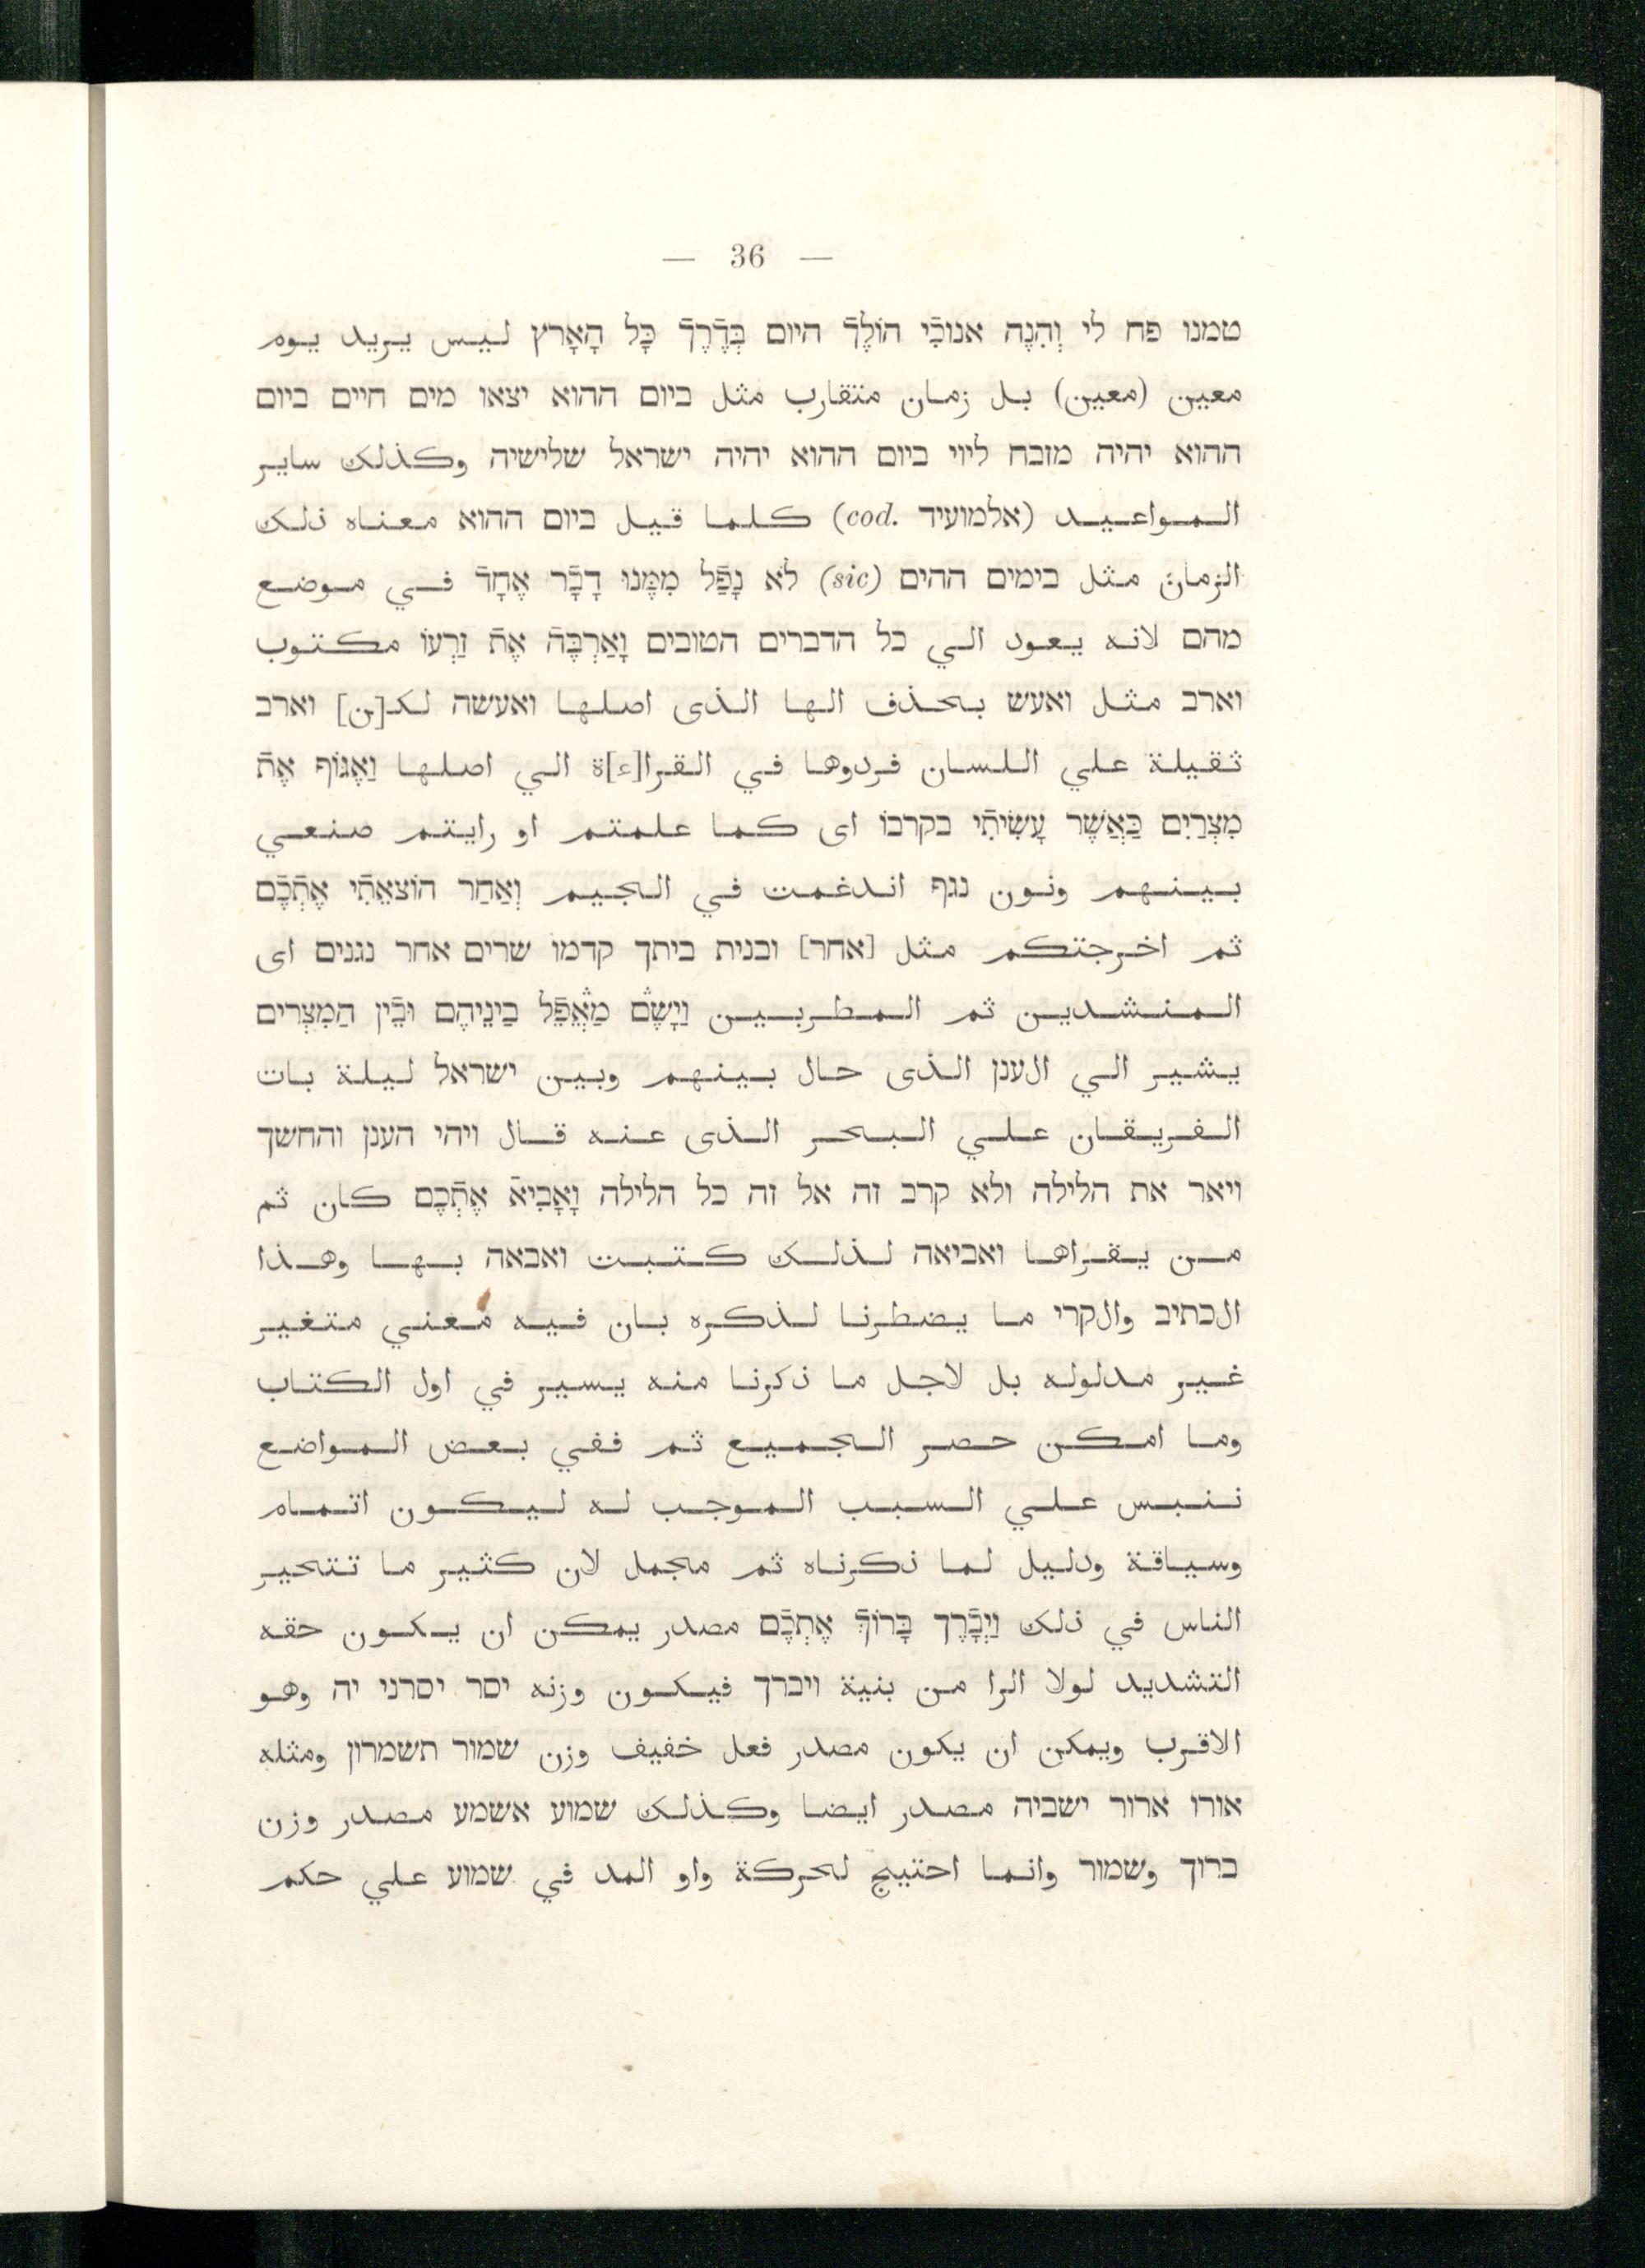 — 36 —
טמנו פח לי וְהִנֶה אנוכִֿי הוֹלֶךֿ היום בְּדֶֿרֶךֿ כָּל הָאָרץ ليس يريد يوم
معين (מעין) بل زمان متقارب مثل ביום ההוא יצאו מים חיים ביום
ההוא יהיה מזבח ליוי ביום ההוא יהיה ישראל שלישיה وكذلك ساير
المواعيد (אלמועיד cod.) كلما قيل ביום ההוא معناه ذلك
الزمان مثل בימים ההים (sic) לֹא נָפַֿל מִמֶּנוּ דָבָֿר אֶחָדֿ في موضع
מהם لانه يعود الي כל הדברים הטובים וָאַרְבֶּהֿ אֶתֿ זַרְעוֹ مكتوب
וארב مثل ואעש بحذف الها الذى اصلها ואעשה لك[ن] וארב
ثقيلة علي اللسان فردوها في القرا[ء]ة الي اصلها וָאֶגּוֹף אֶתֿ
מִצְרַיִם כַּאֲשֶׁר עָשִׂיתִֿי בקרבוֹ اى كما علمتم او رايتم صنعي
بينهم ونون נגף اندغمت في الجيم וְאַחַר הוֹצאֵתִֿי אֶתְֿכֶֿם
ثم اخرجتكم مثل [אחר] ובנית ביתך קדמו שרים אחר נגנים اى
المنشدين ثم المطربين וַיָשֶׂם מַאֲפֵֿל בֵינֵיהֶם וּבֵֿין הַמִּצְרִים
يشير الي الענן الذى حال بينهم وبين ישראל ليلة بات
الفريقان علي البحر الذى عنه قال ויהי הענן והחשך
ויאר את הלילה ולא קרב זה אל זה כל הלילה וָאָבִיאֿ אֶתְֿכֶם كان ثم
من يقراها ואביאה لذلك كتبت ואבאה بها وهذا
الכתיב والקרי ما يضطرنا لذكره بان فيه معني متغير
غير مدلوله بل لاجل ما ذكرنا منه يسير في اول الكتاب
وما امكن حصر الجميع ثم ففي بعض المواضع
ننبس علي السبب الموجب له ليكون اتمام
وسياقة ودليل لما ذكرناه ثم مجمل لان كثير ما تتحير
الناس في ذلك וַיְבָֿרֶך בָּרוֹךֿ אֶתְכֶֿם مصدر يمكن ان يكون حقه
التشديد لولا الرا من بنية ויברך فيكون وزنه יסר יסרני יה وهو
الاقرب ويمكن ان يكون مصدر فعل خفيف وزن שמור תשמרון ومثله
אורו ארור ישביה مصدر ايضا وكذلك שמוע אשמע مصدر وزن
ברוך وשמור وانما احتيج لحركة واو المد في שמוע علي حكم